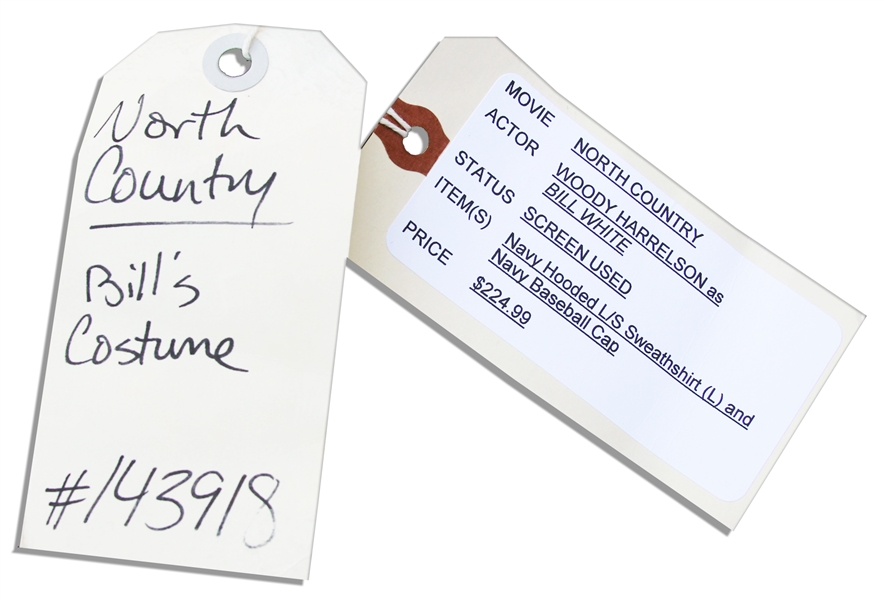 North
Country
Bill's
Costume
#143918
MOVIE NORTH COUNTRY
ACTOR WOODY HARRELSON as
BILL WHITE
STATUS SCREEN USED
ITEM(S) Navy Hooded L/S Sweathshirt (L) and
Navy Baseball Cap
PRICE $224.99